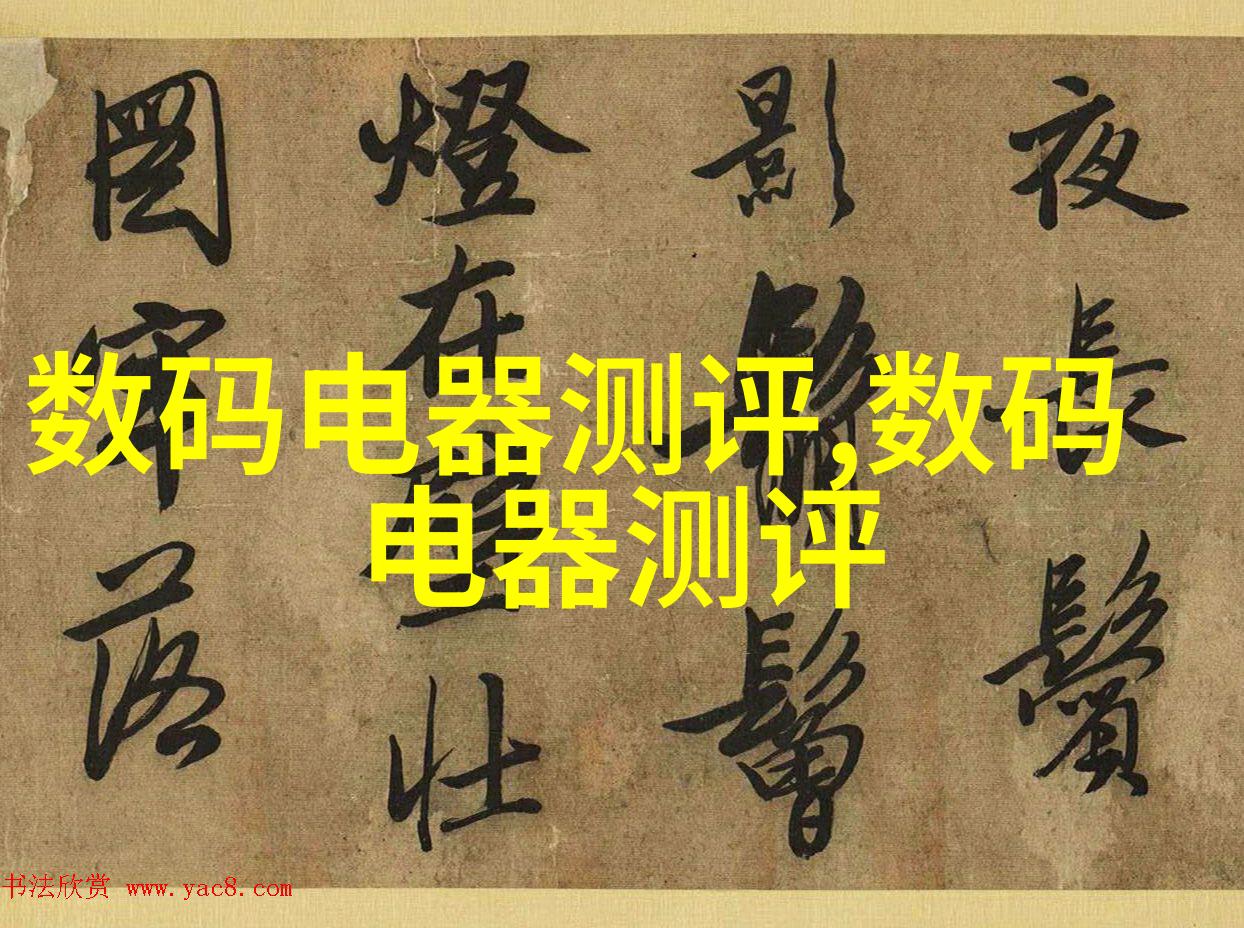 夜長鬢
影鬅鬙
燈在壁壮
圖牢落
数码电器测评,数码
电器测评
书法欣赏 www.yac8.com